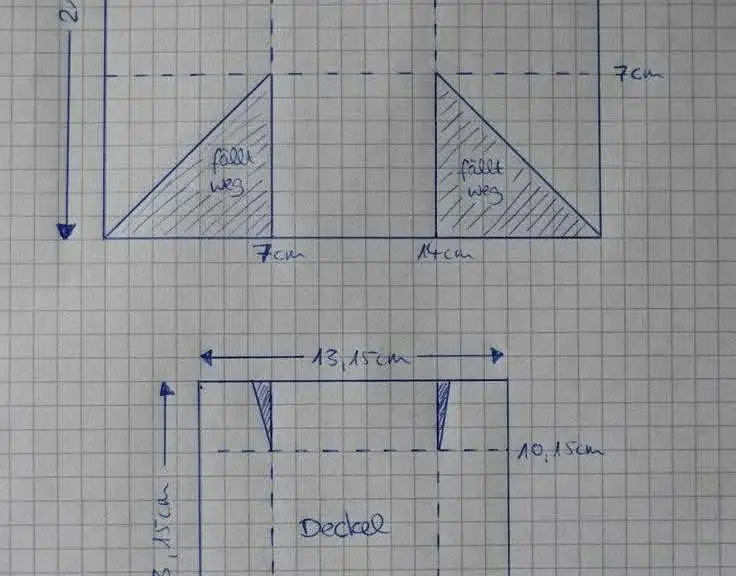 7cm
fällt
weg
fällt
weg
7cm
14cm
13,15cm
10,15cm
,15cm
Deckel